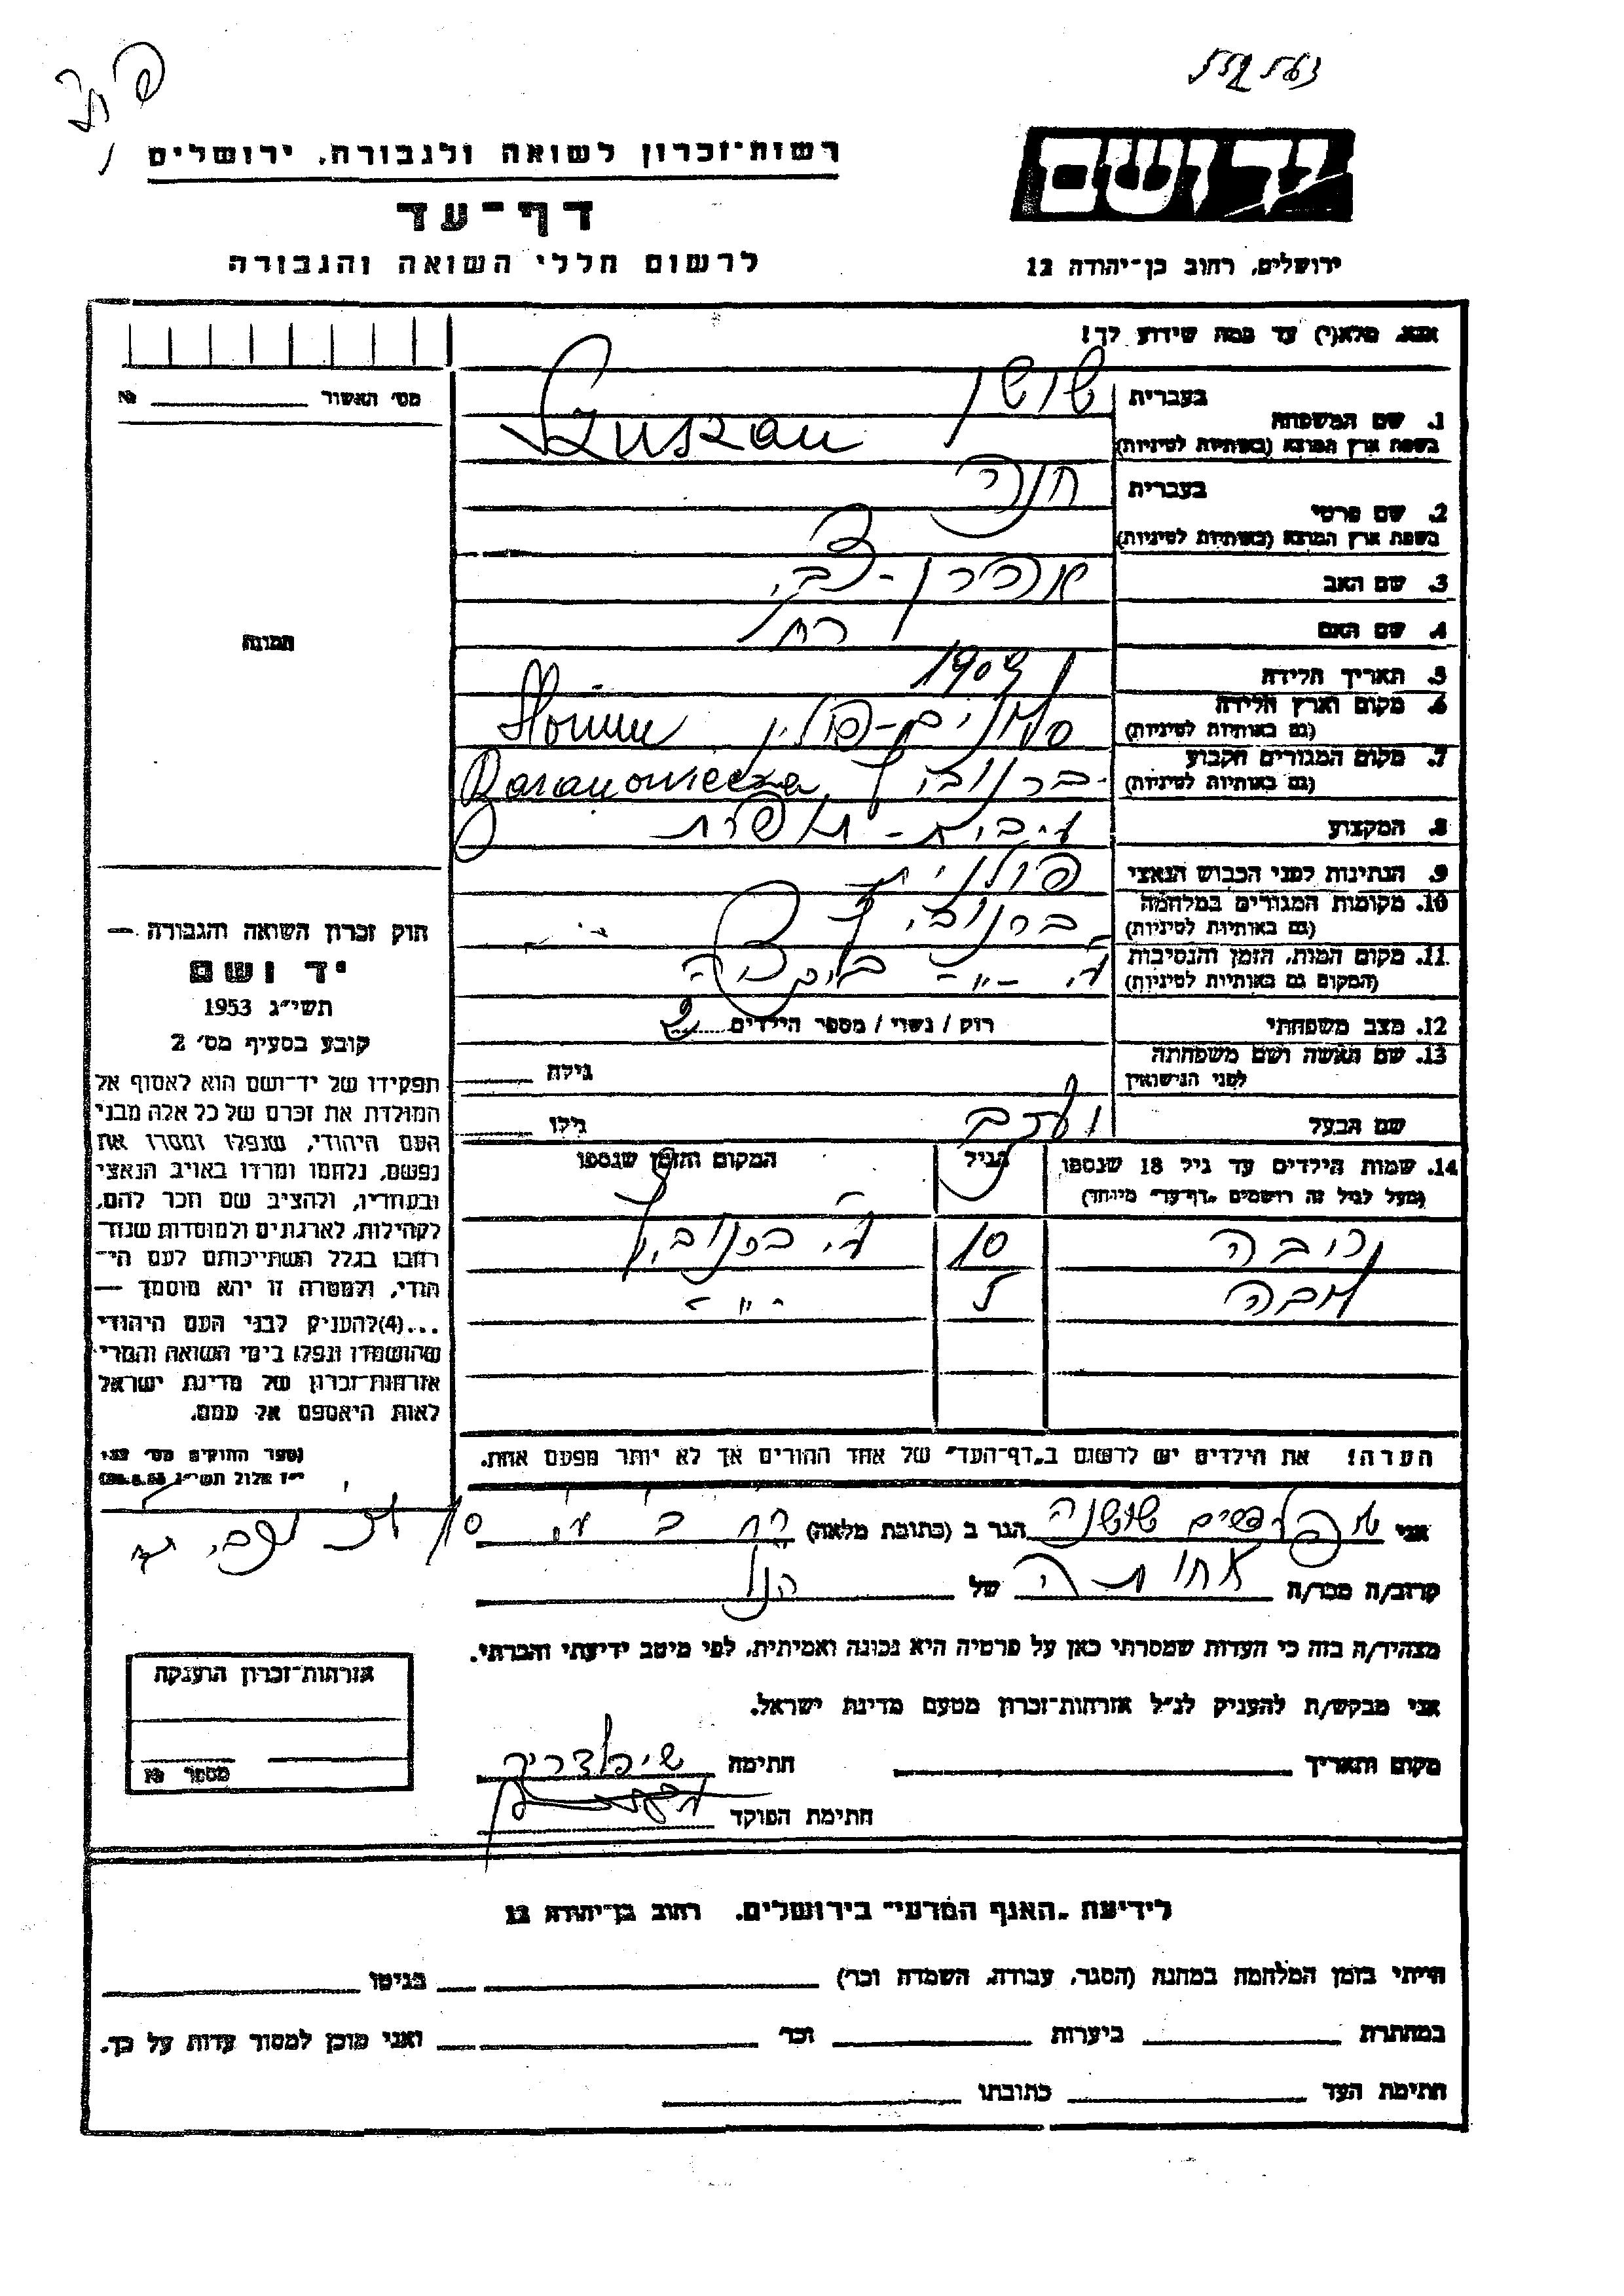 רשות־זכרון לשואה ולגבורה, ירושלים
יד ושם
דף־עד
לרשום חללי השואה והגבורה
ירושלים, רחוב בן־יהודה 12
אנא, מלא(י) עד כמה שידוע לך!
מס׳ האשור № ______
1. שם המשפחה
בעברית שושן
בשפת ארץ המוצא (באותיות לטיניות) Szuszan
2. שם פרטי
בעברית חנה
בשפת ארץ המוצא (באותיות לטיניות)
3. שם האב אהרן-צבי
4. שם האם רחל
5. תאריך הלידה 1904
6. מקום וארץ הלידה סלונים-פולין Słonim
(גם באותיות לטיניות)
7. מקום המגורים הקבוע ברנוביץ Baranowicze
(גם באותיות לטיניות)
8. המקצוע תופרת
9. הנתינות לפני הכבוש הנאצי פולנית
10. מקומות המגורים במלחמה ברנוביץ
(גם באותיות לטיניות)
11. מקום המות, הזמן והנסיבות
(המקום גם באותיות לטיניות)
12. מצב משפחתי רווק / נשוי / מספר הילדים 2
13. שם האשה ושם משפחתה
לפני הנישואין
גילה
שם הבעל
גילו
14. שמות הילדים עד גיל 18 שנספו
(מעל לגיל זה רושמים "דף־עד" מיוחד)
הגיל
המקום והזמן שנספו
10 ברנוביץ
-"-
הערה! את הילדים יש לרשום ב"דף־העד" של אחד ההורים אך לא יותר מפעם אחת.
תמונה
חוק זכרון השואה והגבורה —
יד ושם
תשי״ג 1953
קובע בסעיף מס׳ 2
תפקידו של יד־ושם הוא לאסוף אל
המולדת את זכרם של כל אלה מבני
העם היהודי, שנפלו ומסרו את
נפשם, נלחמו ומרדו באויב הנאצי
ובעוזריו, ולהציב שם וזכר להם,
לקהילות, לארגונים ולמוסדות שנח־
רבו בגלל השתייכותם לעם הי־
הודי, ולמטרה זו יהא מוסמך —
...(4) להעניק לבני העם היהודי
שהושמדו ונפלו בימי השואה והמרי
אזרחות־זכרון של מדינת ישראל
לאות היאספם אל עמם.
(ספר החוקים מס׳ 132
י״ז אלול תשי״ג 28.8.53)
אני שושנה הגר ב (כתובת מלאה)
קרוב/ה מכר/ה אחותה של הנ"ל
מצהיר/ה בזה כי העדות שמסרתי כאן על פרטיה היא נכונה ואמיתית, לפי מיטב ידיעתי והכרתי.
אני מבקש/ת להעניק לנ״ל אזרחות־זכרון מטעם מדינת ישראל.
מקום ותאריך ______ חתימה
חתימת הפוקד
אזרחות־זכרון הוענקה
מספר №
לידיעת "האגף המדעי" בירושלים, רחוב בן־יהודה 12
הייתי בזמן המלחמה במחנה (הסגר, עבודה, השמדה וכר׳) ______ בגיטו ______
במחתרת ______ ביערות ______ וכר׳ ______ ואני מוכן למסור עדות על כך.
חתימת העד ______ כתובתו ______